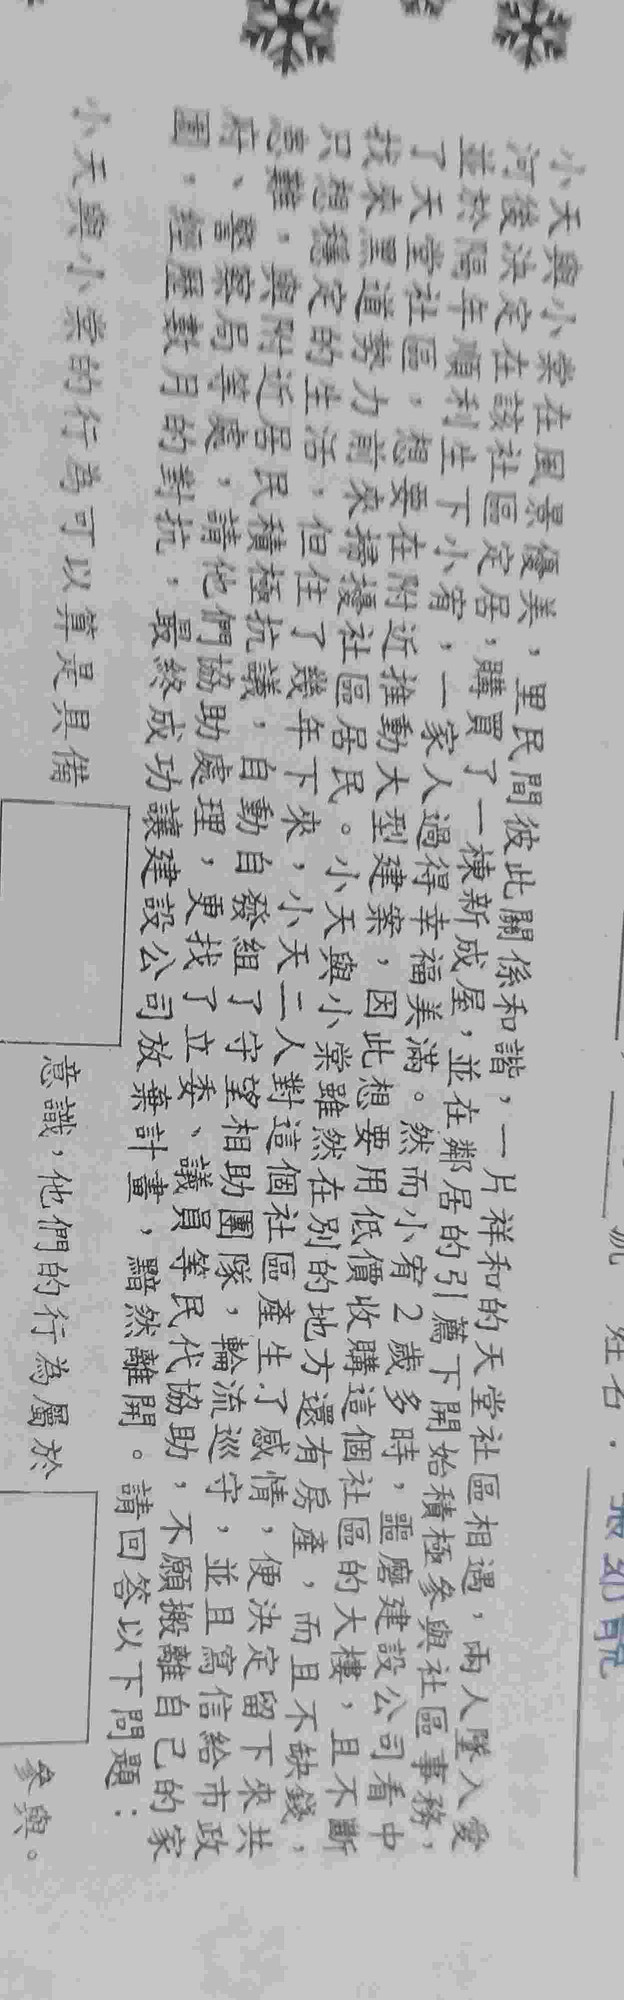 姓名：
小天與小棠在風景優美，里民間彼此關係和諧，一片祥和的天堂社區相遇，兩人墜入愛
河後決定在該社區定居，購買了一棟新成屋，並在鄰居的引薦下開始積極參與社區事務，
並於隔年順利生下小宥，一家人過得幸福美滿。然而小宥2歲多時，噩磨建設公司看中
了天堂社區，想要在附近推動大型建案，因此想要用低價收購這個社區的大樓，且不斷
找來黑道勢力前來擾社區居民。小天與小棠雖然在別的地方還有房產，而且不缺錢，
只想穩定的生活，但住了幾年下來，小天二人對這個社區產生了感情，便決定留下來共
患難，與附近居民積極抗議，自動自發組了守望相助團隊，輪流巡守，並且寫信給市政
府、警察局等處，請他們協助處理，更找了立委、議員等民代協助，不願搬離自己的家
園，經歷數月的對抗，最終成功讓建設公司放棄計畫，黯然離開。請回答以下問題：
小天與小棠的行為可以算是具備 意識，他們的行為屬於 參與。